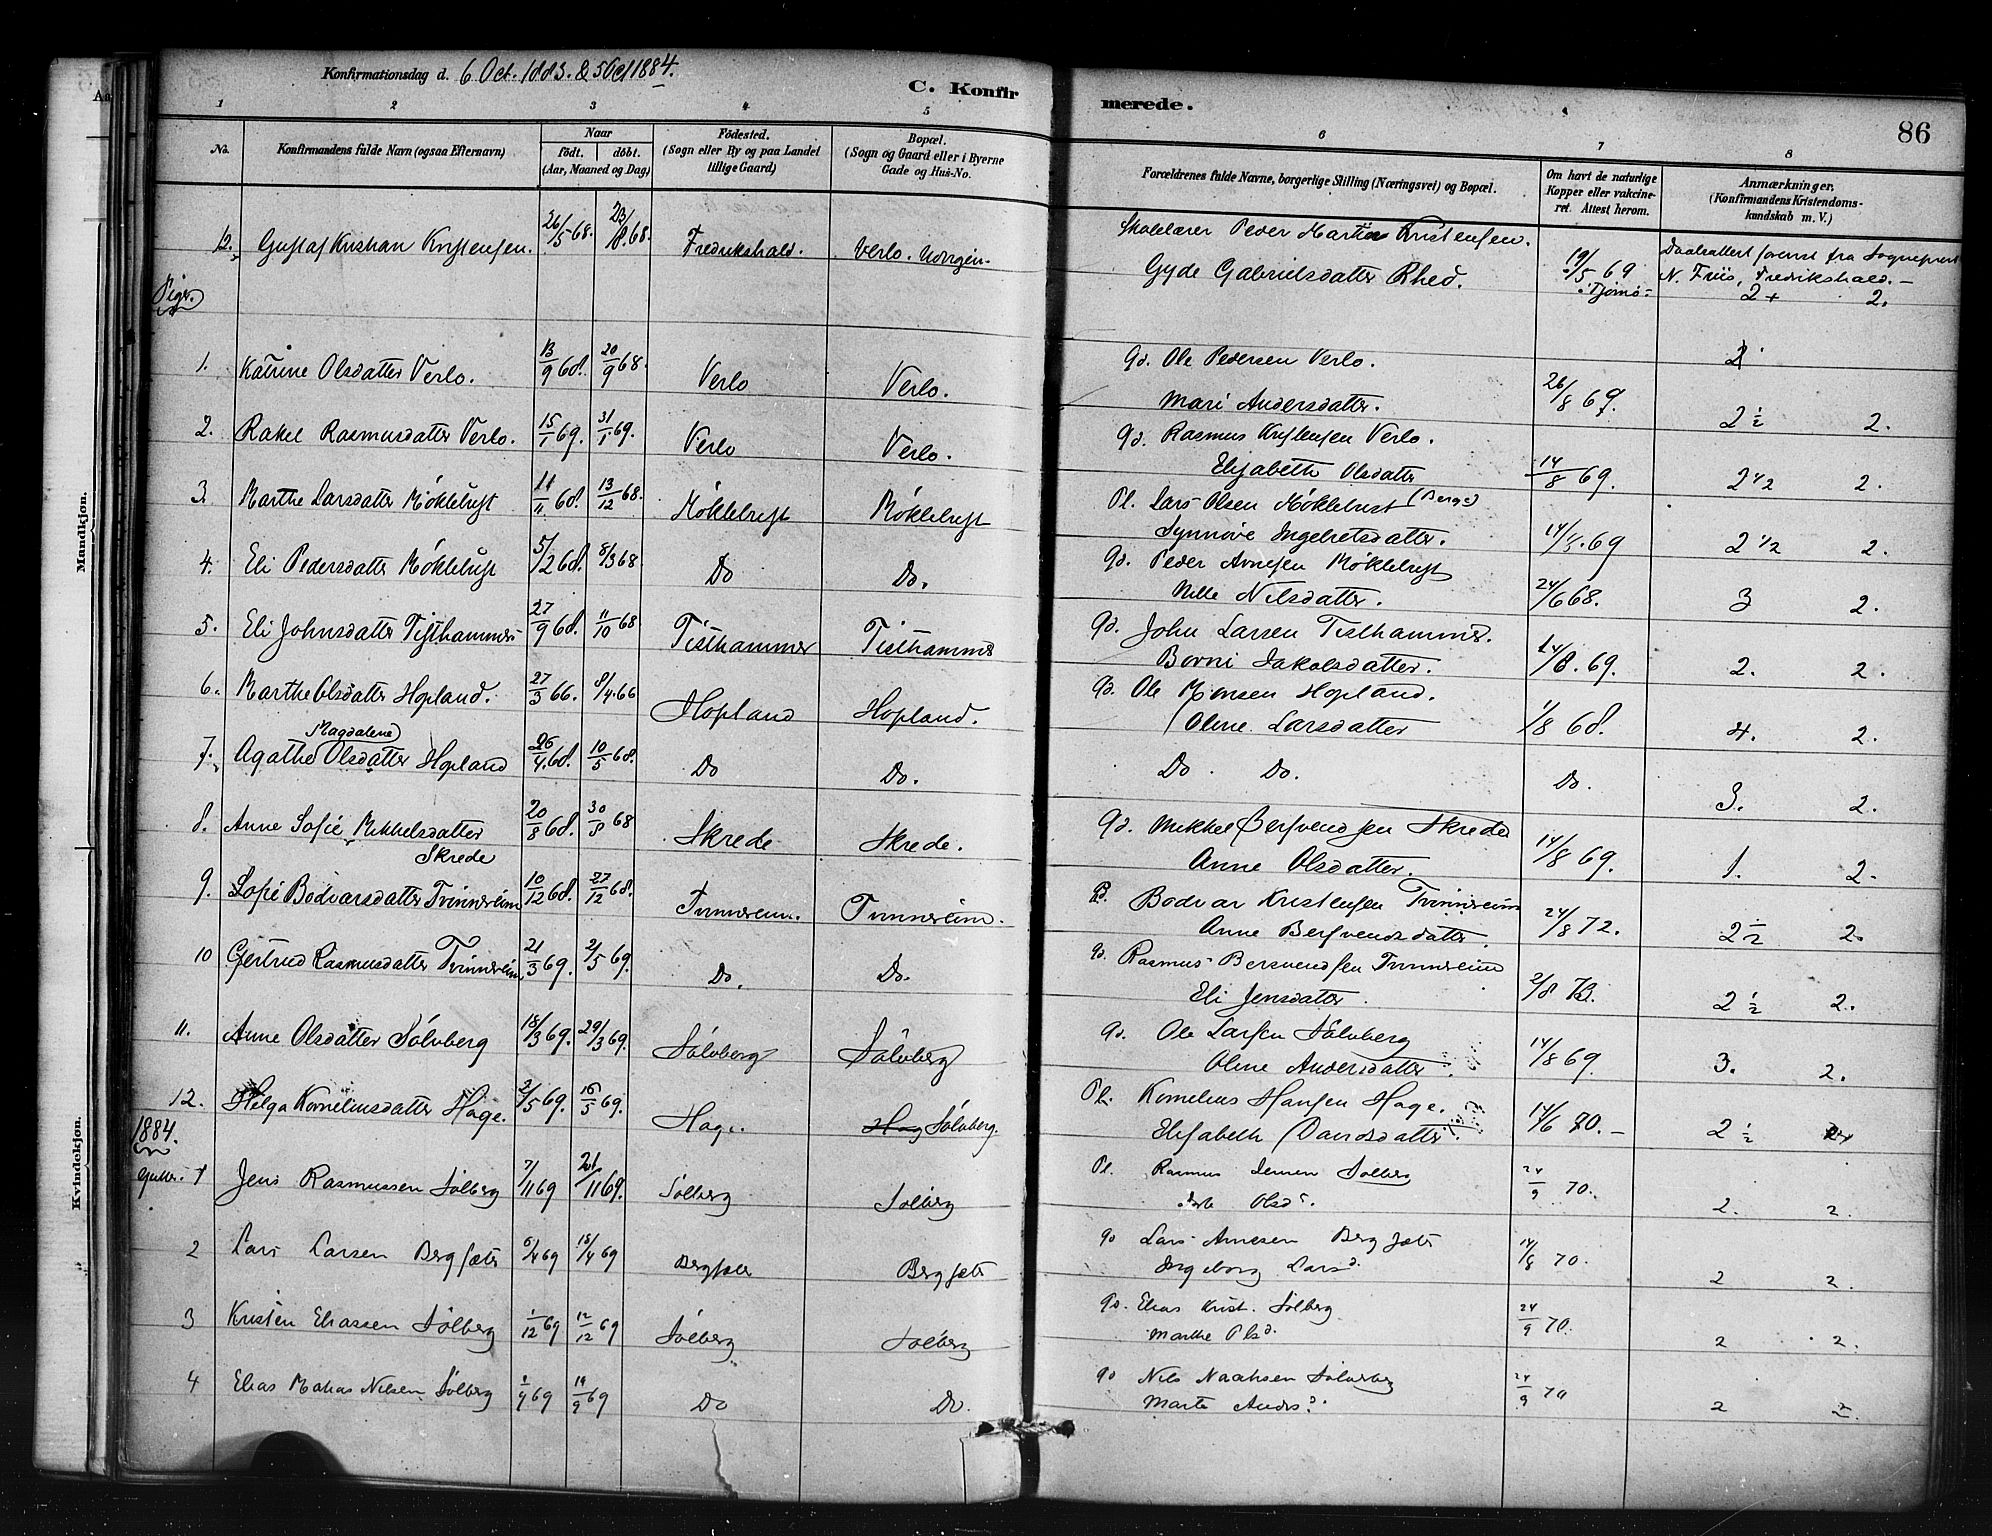 Konfirmationsdag d. 6 Oct. 1883. & 5 Oct 1884.
C. Konfirmerede.
86
1 2 3 4 5 6 7 8
No.
Konfirmandens fulde Navn (ogsaa Efternavn)
Naar
født. døbt.
(Aar, Maaned og Dag)
Fødested.
(Sogn eller By og paa Landet tillige Gaard)
Bopæl.
(Sogn og Gaard eller i Byerne Gade og Hus-No.
Forældrenes fulde Navne, borgerlige Stilling (Næringsvei) og Bopæl.
Om havt de naturlige Kopper eller vakcineret. Attest herom.
Anmærkninger.
(Konfirmandens Kristendomskundskab m. V.)
Mandkjøn.
Kvindekjøn.
12. Gustaf Kristian Kristensen. 26/5 68. 23/8. 68. Fredrikshald. Verlo. Skolelærer Peder Martin Kristensen. Gyde Gabrielsdatter Rhed. 19/5 69 Tjømø Daabsattest fra Sognepræst N. Friis, Fredrikshald. 2+ 2.
Piger.
1. Katrine Olsdatter Verlo. 13/9 68. 20/9 68. Verlo Verlo. Gd. Ole Pedersen Verlo. Mari Andersdatter. 26/8 69. 2½ 2.
2. Rakel Rasmusdatter Verlo. 15/1 69. 31/1 69. Verlo Verlo. Gd. Rasmus Kristensen Verlo. Elisabeth Olsdatter 14/8 69. 2½ 2.
3. Marthe Larsdatter Møklebust 11/11 68. 13/12 68. Møklebust Møklebust Pl. Lars Olsen Møklebust (Berge) Synnøve Ingebretsdatter. 14/8. 69 2½ 2.
4. Eli Pedersdatter Møklebust 5/2 68. 8/3 68 Do Do. Gd. Peder Arnesen Møklebust Nille Nilsdatter. 24/6 68. 3 2.
5. Eli Johnsdatter Tisthammer 27/9 68. 11/10 68 Tisthammer Tisthammer Gd. John Larsen Tisthammer. Borni Jakobsdatter. 14/8. 69. 2. 2.
6. Marthe Olsdatter Hopland. 27/3 66. 8/4. 66 Hopland Hopland. Gd. Ole Monsen Hopland. Oline Larsdatter 1/8 68. 4. 2.
7. Agathe Magdalene Olsdatter Hopland 26/4. 68. 10/5 68. Do Do. Do. Do. Do. 3. 2.
8. Anne Sofie Mikkelsdatter Skrede 20/8 68. 30/8 68 Skrede Skrede. Gd. Mikkel Bersvendsen Skrede Anne Olsdatter. 14/8 69. 1. 2.
9. Sofie Bodvarsdatter Tvinnereim 10/12 68. 27/12 68. Tvinnereim. Tvinnereim. Gd. Bodvar Kristensen Tvinnereim Anne Bersvendsdatter. 24/8 72. 2½ 2.
10 Gjertrud Rasmusdatter Tvinnereim. 21/3 69. 2/5 69. Do. Do. Gd. Rasmus Bersvendsen Tvinnereim Eli Jensdatter. 2/8 73. 2½ 2.
11. Anne Olsdatter Sølvberg 18/3 69. 29/3 69. Sølvberg Sølvberg Gd. Ole Larsen Sølvberg Oline Andersdatter. 14/8 69. 3. 2.
12. Helga Korneliusdatter Hage. 2/5 69. 16/5 69. Hage. Hag Sølvberg. Pl. Kornelius Hansen Hage. Elisabeth Davidsdatter. 14/6 70. 2½
1884.
Gutter. 1 Jens Rasmussen Sølberg 7/11 69 21/11 69. Sølberg Sølberg Pl. Rasmus Jensen Solberg Olsd. 24/9 70. 2. 2.
2 Lars Larsen Bergsæter 6/4 69 18/4 69 Bergsæter Bergsæter Gd Lars Arnesen Bergsæter Ingeborg Larsd. 14/8 70. 2 2.
3 Kristen Eliassen Sølberg 1/12 69 12/12 69 Sølberg Solberg Gd. Elias Krist. Sølberg Marthe Olsd. 24/9 70. 2 2.
4 Elias Matias Nilsen Sølberg 2/9 69 19/9 69 Do Do. Gd Nils Naahsen Sølvberg Marte Andersd. 24/9 70 2 2.